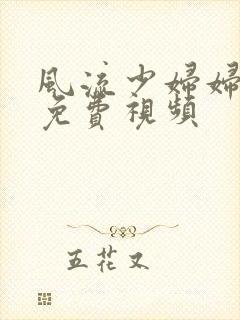 風流少婦婦
免費視頻
五花又